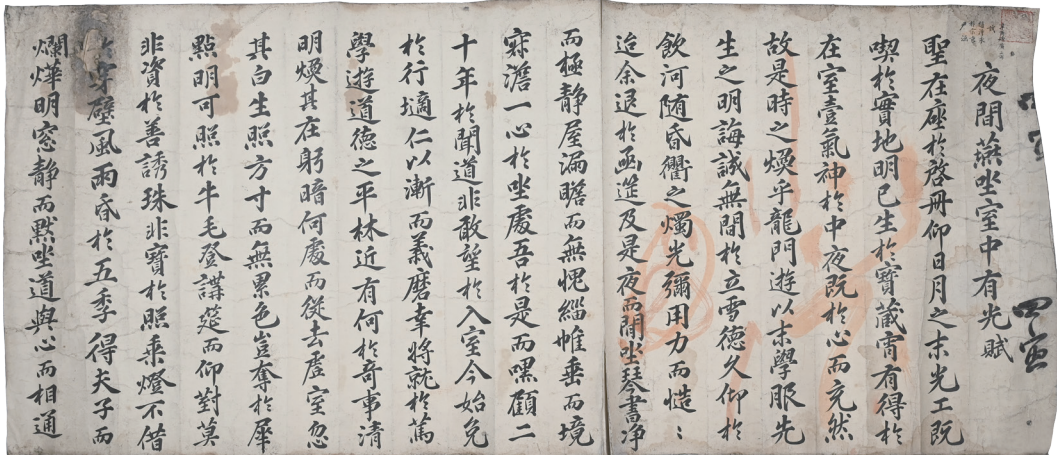 夜間燕坐室中有光賦
聖在座於啓冊仰日月之末光工既
喫於實地明已生於寶藏宵有得於
在室壹氣神於中夜既於心而充然
故是時之煥乎龍門遊以末學服先
生之明誨誠無間於立雪德久仰於
飮河随昏衢之燭光彌用力而慥〻
迨余退於函筵及是夜而閒坐琴書净
而極静屋漏瞻而無愧緇帷垂而境
寂澹一心於坐處吾於是而嘿顧二
十年於聞道非敢望於入室今始免
於行擿仁以漸而義磨幸將就於篤
學遊道德之平林近有何於奇事清
明煥其在躬暗何處而從去虛室忽
其白生照方寸而無累色豈奪於犀
點明可照於牛毛登講筵而仰對莫
非資於善誘珠非寶於照乘燈不借
於穿壁風雨昏於五季得夫子而
爛燁明窓静而默坐道與心而相通